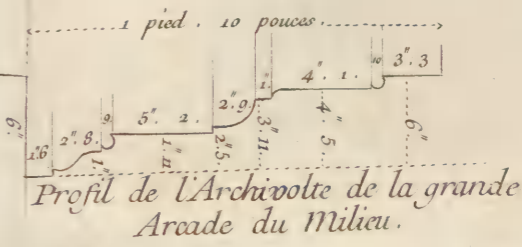 1 pied . 10 pouces .
3". 3
10
4". 1.
1"
2". 9.
5". 2.
9
2". 8.
1". 6
6".
1"
1". 11
2". 5.
3". 11.
4". 5
6"
Profil de l'Archivolte de la grande
Arcade du Milieu.